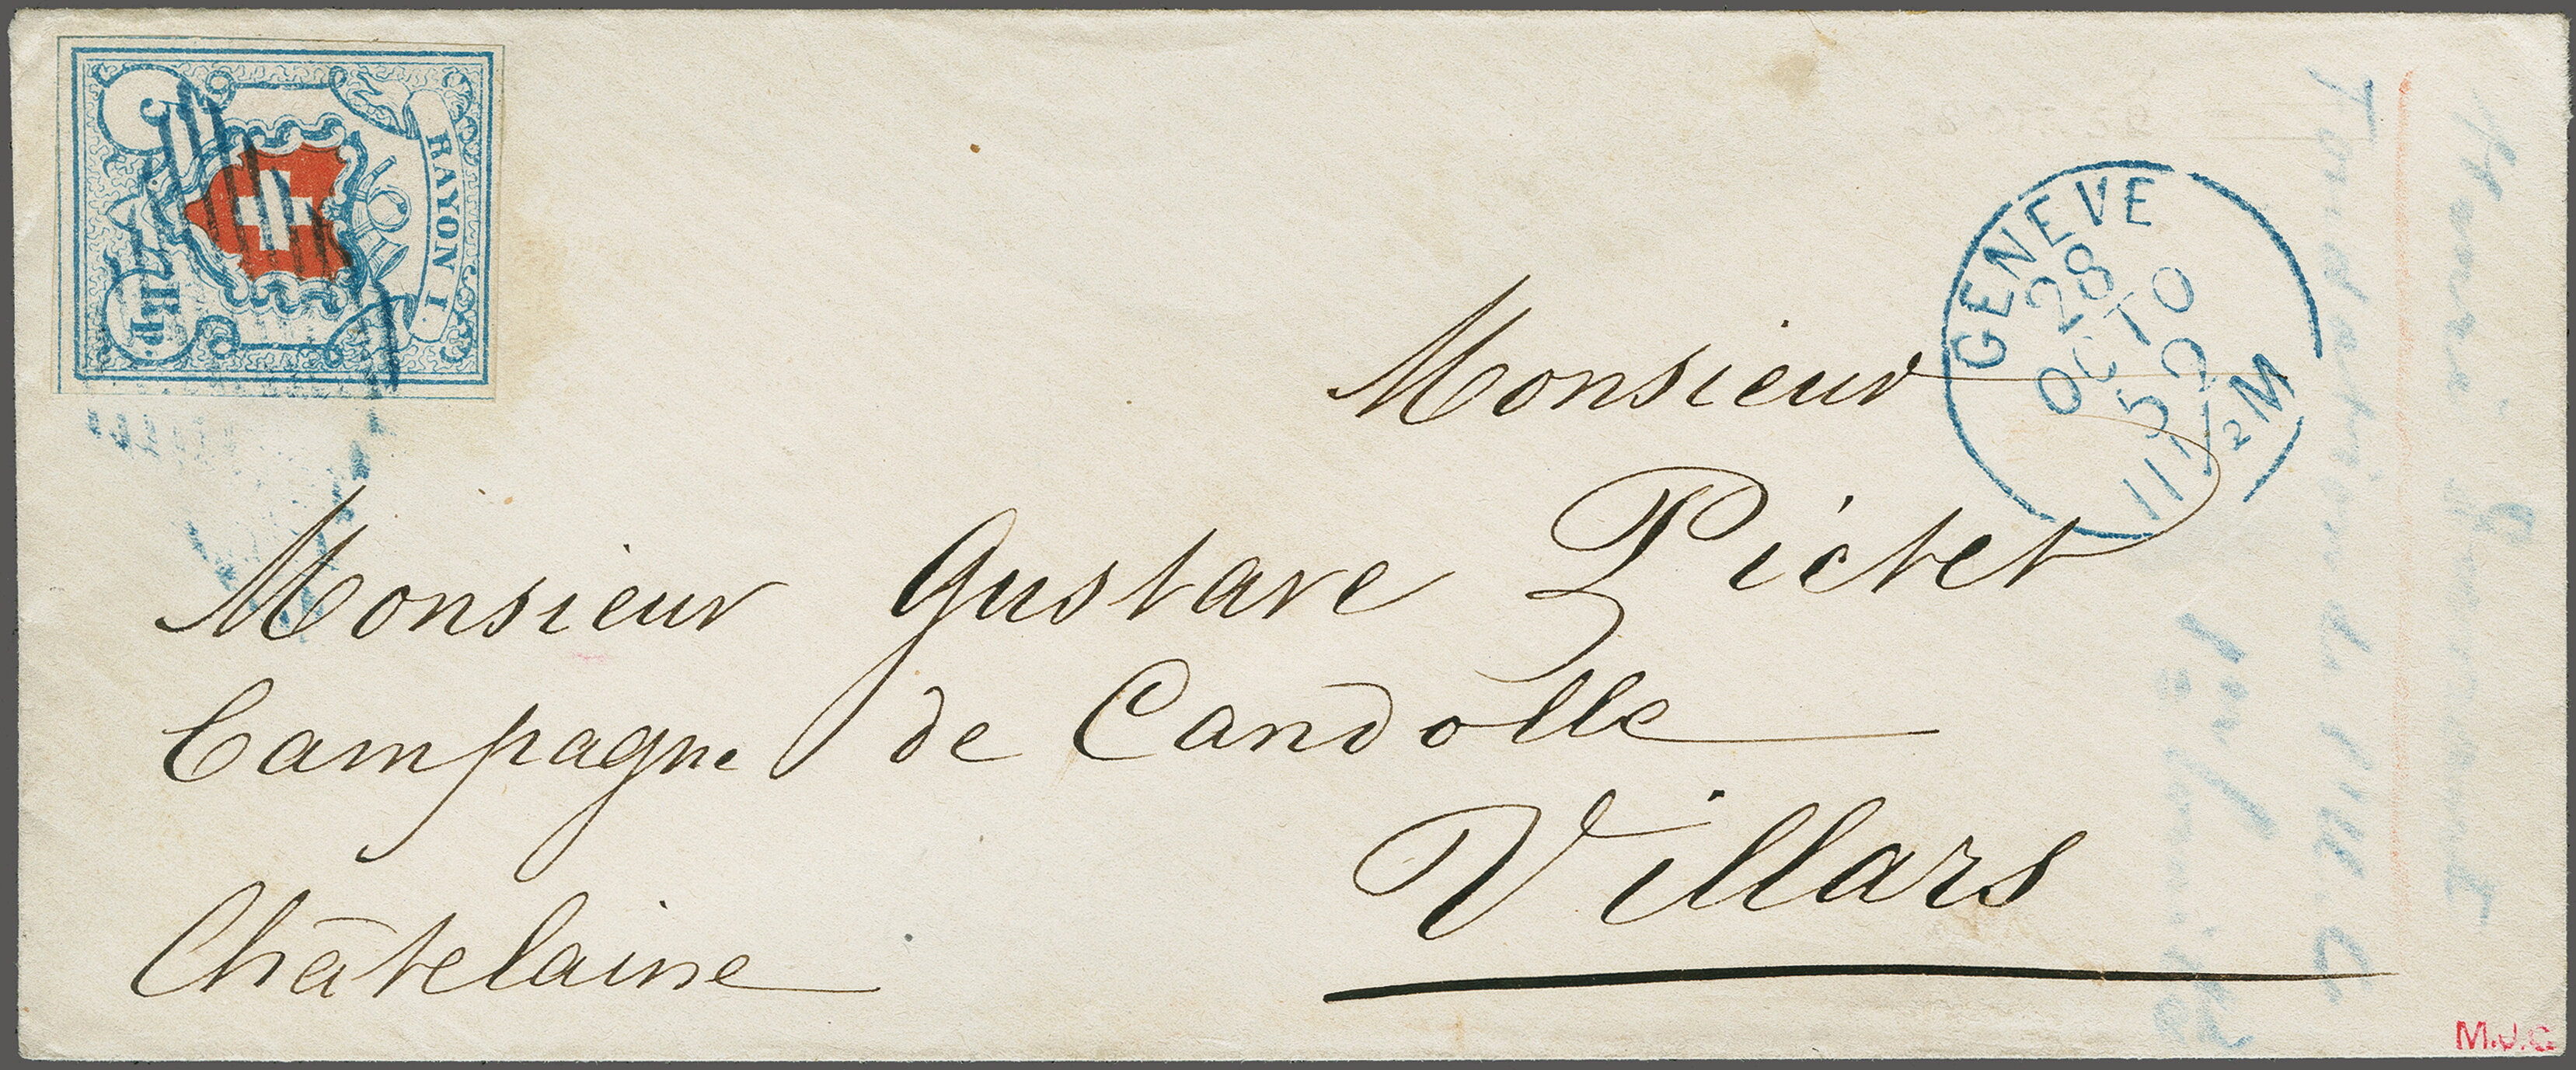 5
Rp.
RAYON I.
GENEVE
28
OCTO
50
11 1/2 M
Monsieur
Monsieur Gustave Pictet
Campagne de Candolle
Villars
Châtelaine
M.J.G